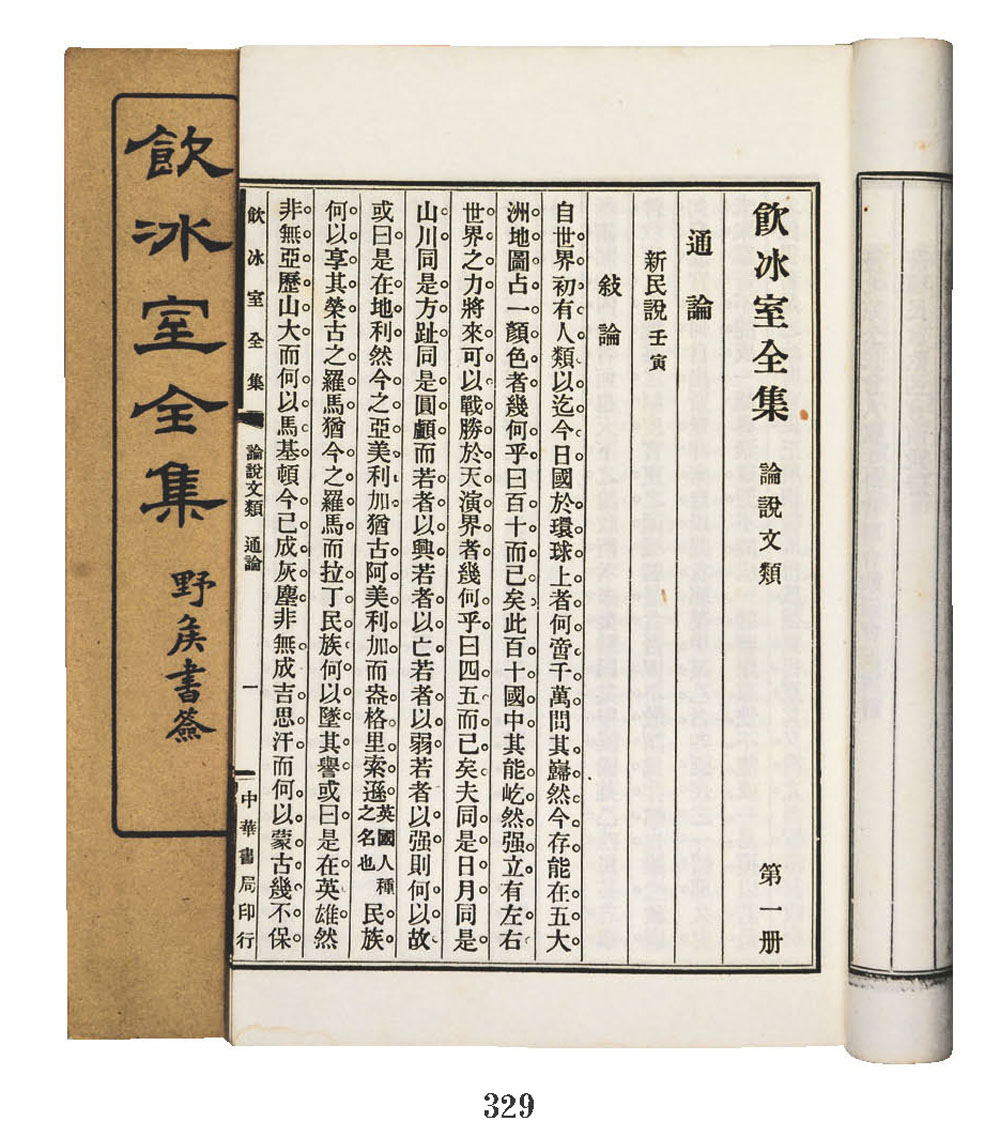 飲冰室全集
野矦書簽
飲冰室全集 論說文類 第一册
通論
新民說 壬寅
敍論
自世界初有人類以迄今日國於環球上者何啻千萬問其巋然今存能在五大
洲地圖占一顏色者幾何乎曰百十而已矣此百十國中其能屹然强立有左右
世界之力將來可以戰勝於天演界者幾何乎曰四五而已矣夫同是日月同是
山川同是方趾同是圓顱而若者以興若者以亡若者以弱若者以强則何以故
或曰是在地利然今之亞美利加猶古阿美利加而盎格里索遜英國人種之名也民族
何以享其榮古之羅馬猶今之羅馬而拉丁民族何以墜其譽或曰是在英雄然
非無亞歷山大而何以馬基頓今已成灰塵非無成吉思汗而何以蒙古幾不保
飲冰室全集 論說文類 通論 一 中華書局印行
329